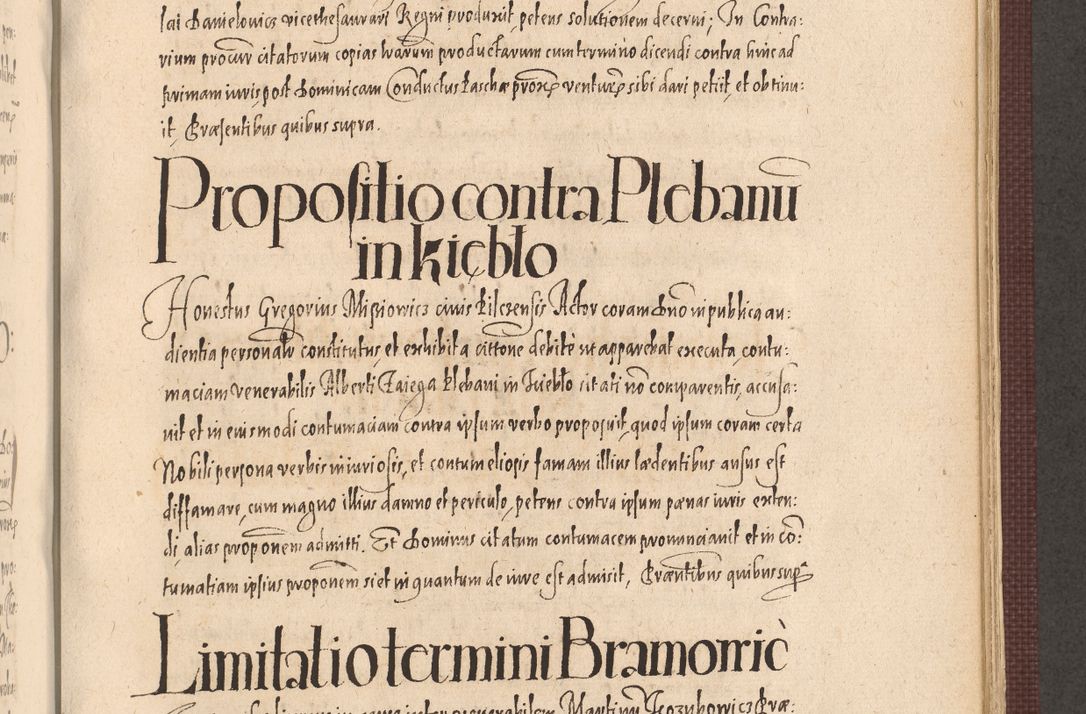 lai Danielowicz vicethesaurarii Regni produxit, petens solutionem decerni; In Contra:
rium procur citatorum copias harum productarum cum termino dicendi contra hinc ad
primam iuris post Dominicam Conductus Paschæ venturæ sibi dari petiit, et obtinu:
it, Præsentibus quibus supra.
Propositio contra Plebanū
in kiębło
Honestus Gregorius civis Kilczensis Actor coram Dno in publica au:
dientia personalr constitutus, et exhibita cittone debitè ut apparebat executa, contu:
maciam venerabilis Alberti Zaięga Plebani in Kiebło citati nō comparentis, accusa:
vit et in eiusmodi contumaciam contra ipsum verbo proposuit, quod ipsum coram certa
Nobili persona verbis iniuriosis, et contumeliosis famam illius lædentibus ausus est
diffamare, cum magno illius damno et periculo, petens contra ipsum pænas iuris exten:
di, alias proponem admitti. Et Dominus citatum contumacem pronunciavit et in cō:
tumatiam ipsius proponem si et in quantum de iure est admisit, Præntibus quibus supr
Limitatio termini Bramorricè
in causa inter venerabilem Martinū Kozubowicz Præ: